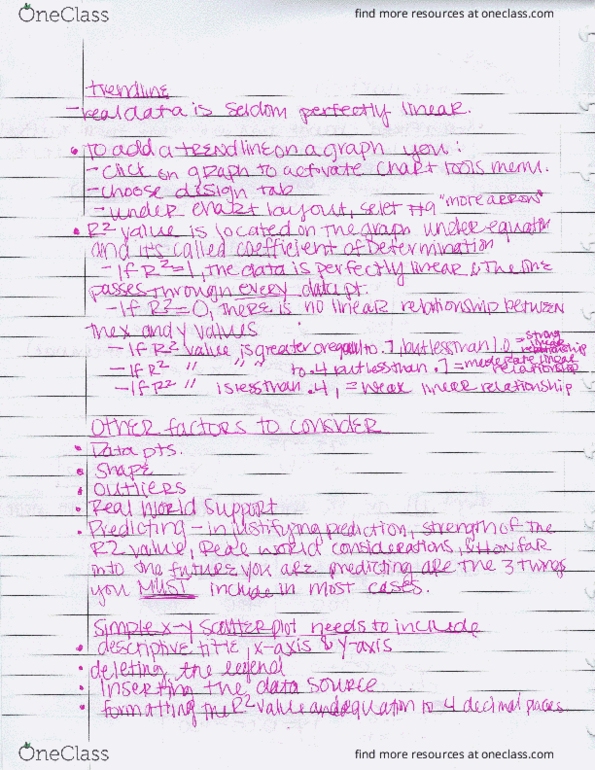 OneClass find more resources at oneclass.com
trendline
- Real data is seldom perfectly linear.
• To add a trendline on a graph you:
- click on graph to activate chart tools menu.
- choose design tab
- under chart layout, selet #9 "more arrow"
• R² value is located on the graph under equation
and it's called coefficient of Determination
- If R²=1, the data is perfectly linear & the line
passes through every data pt.
- If R²=0, there is no linear relationship between
the x and y values
- If R² value is greater or equal to .7, but less than 1.0 = strong linear relationship
- If R² " " " to .4 but less than .7 = moderate linear relationship
- If R² " is less than .4, = weak linear relationship
Other factors to consider
• Data pts.
• Shape
• Outliers
• Real World Support
• Predicting - in justifying prediction, strength of the
R2 value, Real world considerations, & how far
into the future you are predicting are the 3 things
you MUST include in most cases.
Simple x-y scatter plot needs to include
• descriptive title, x-axis & y-axis
• deleting the legend
• Inserting the data source
• formatting the R² value and equation to 4 decimal places
OneClass find more resources at oneclass.com